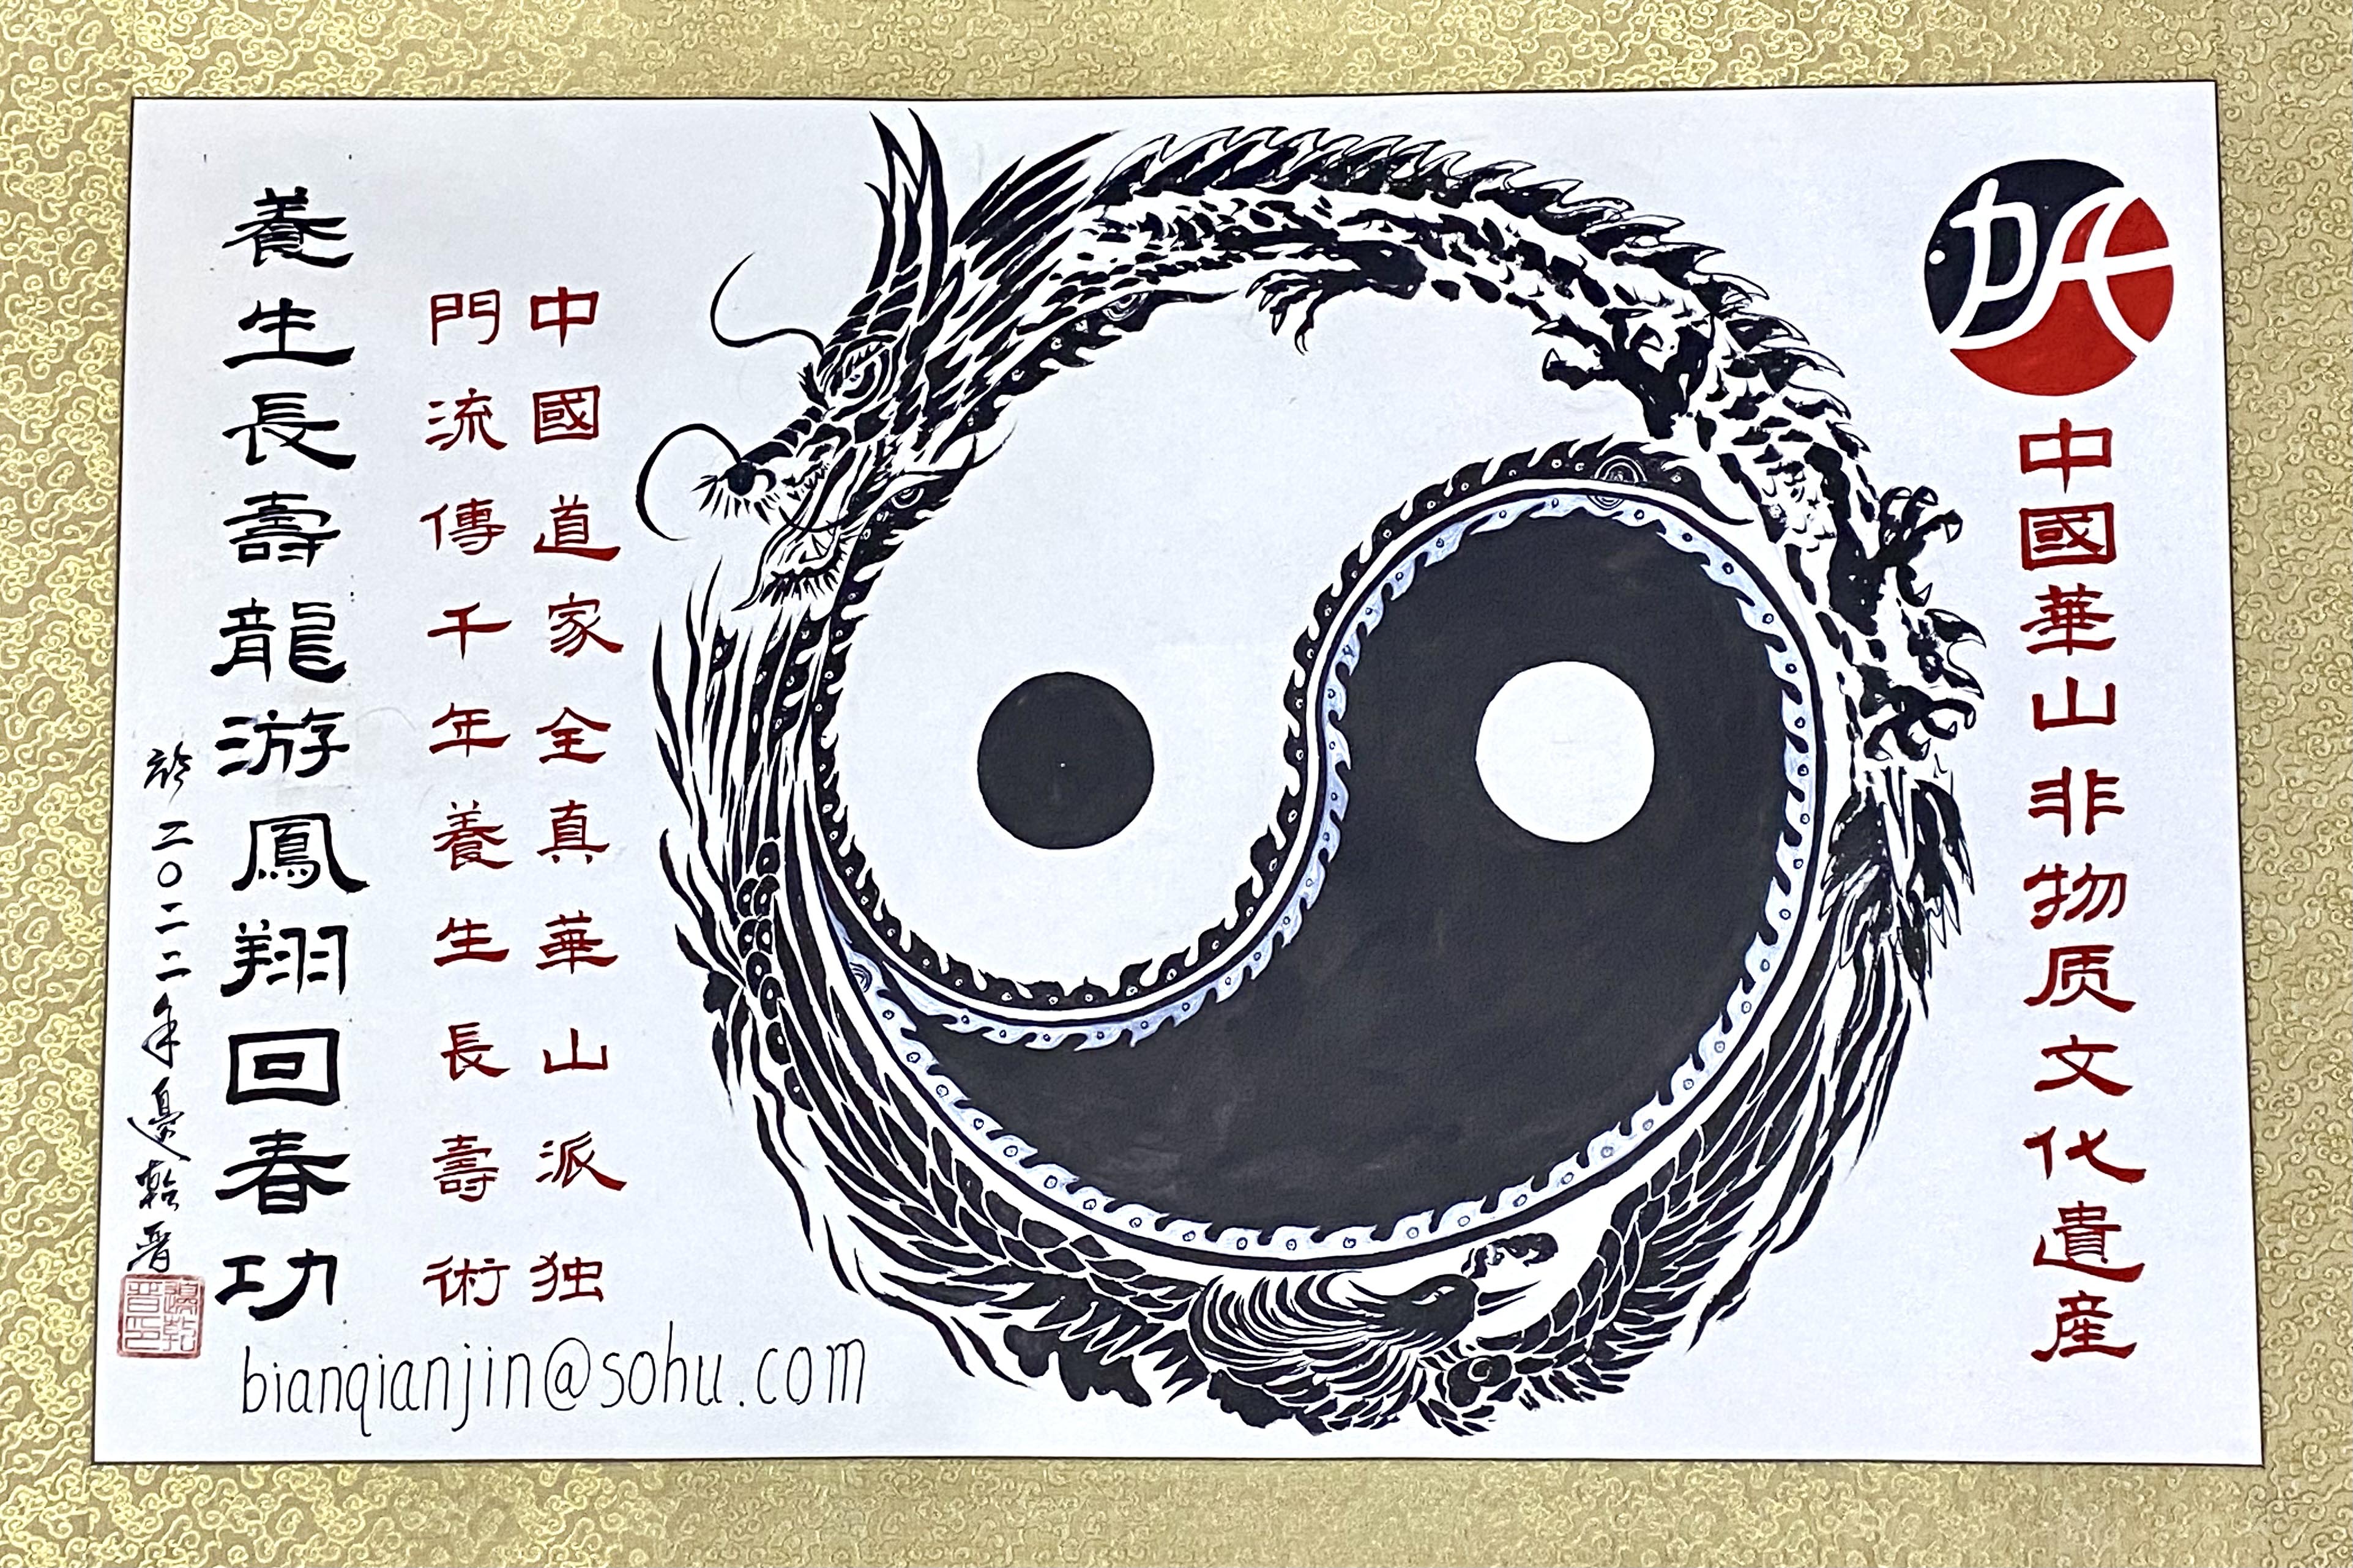 中國華山非物质文化遺産
中國道家全真華山派独
門流傳千年養生長壽術
養生長壽龍游鳳翔回春功
於二〇二二年邊乾晋
邊乾晋印
bianqianjin@sohu.com